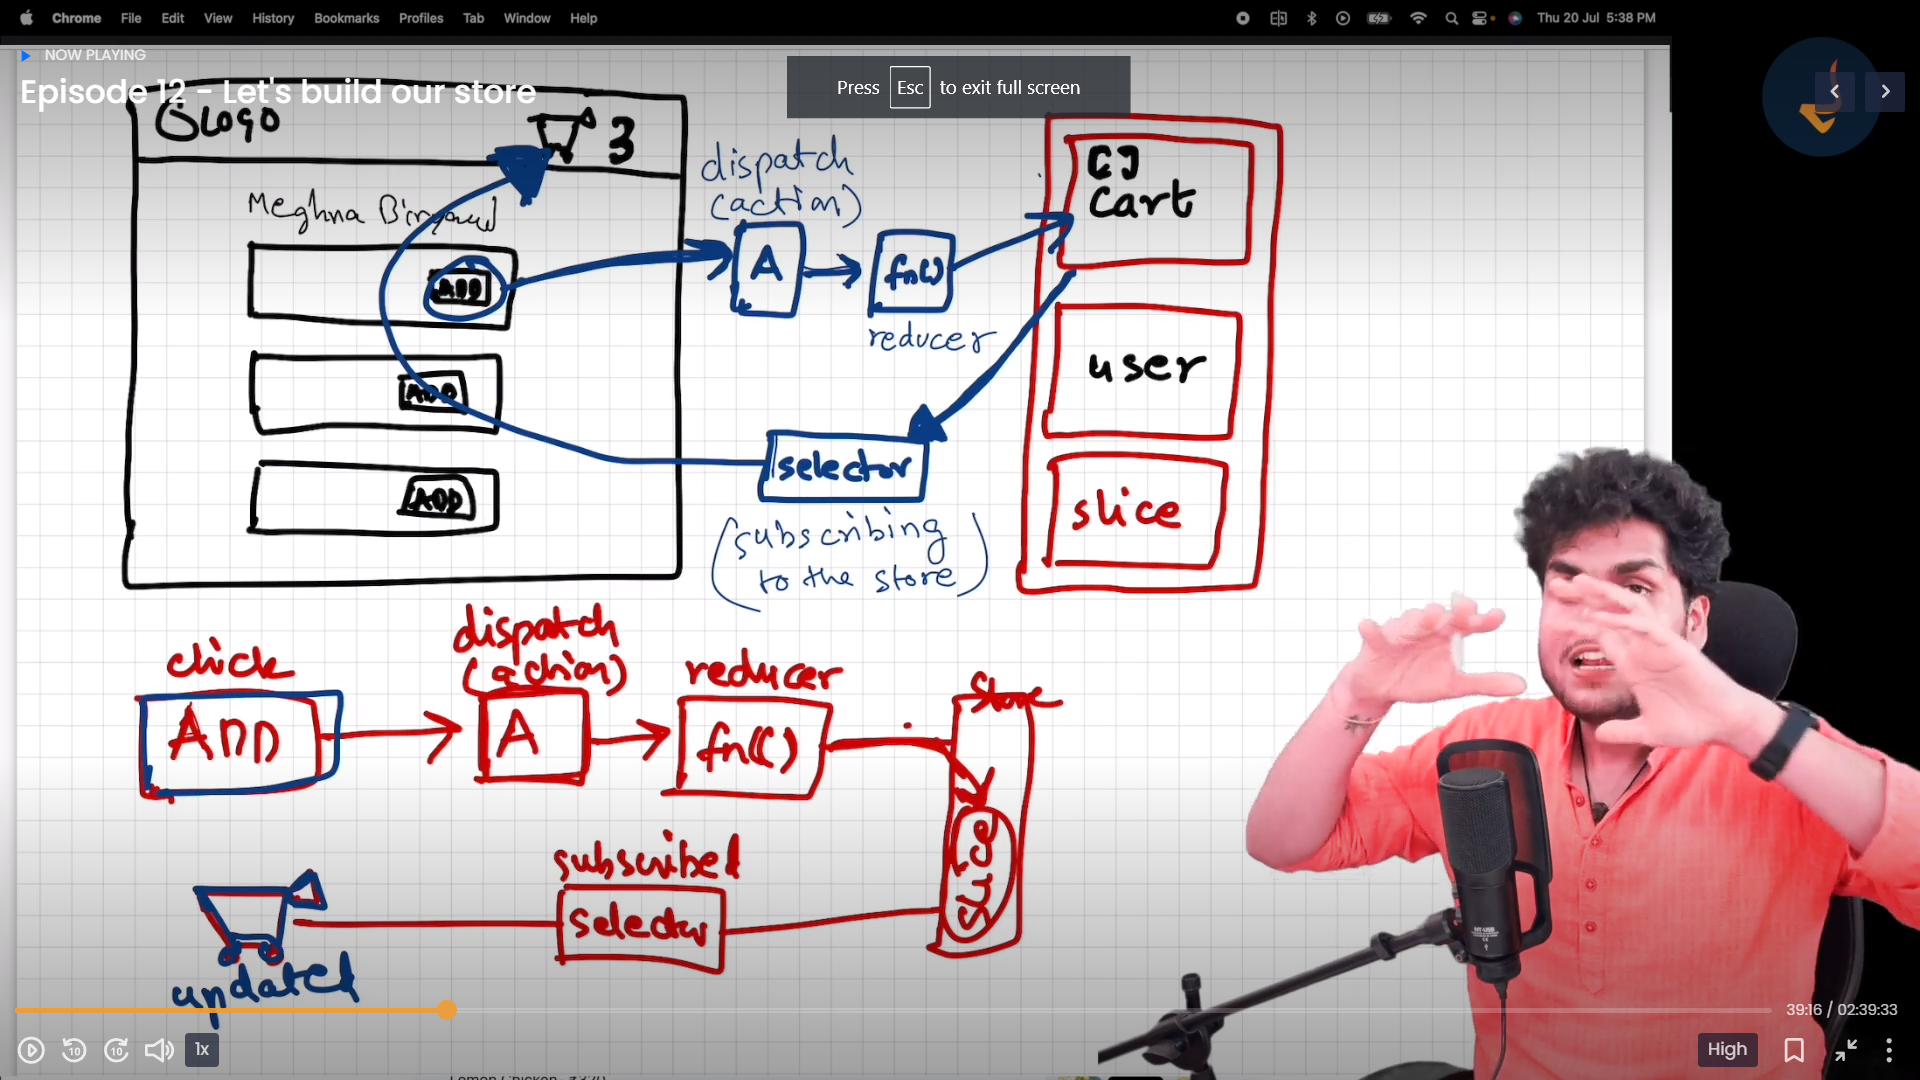 Chrome File Edit View History Bookmarks Profiles Tab Window Help
Thu 20 Jul 5:38 PM
NOW PLAYING
Episode 12 - Let's build our store
Press Esc to exit full screen
LOGO
3
Meghna Biryani
ADD
ADD
ADD
dispatch
(action)
A
fn()
reducer
[]
Cart
user
slice
selector
(subscribing
to the store)
click
ADD
dispatch
(action)
A
reducer
fn()
Store
slice
subscribed
selector
updated
39:16 / 02:39:33
10
10
1x
High